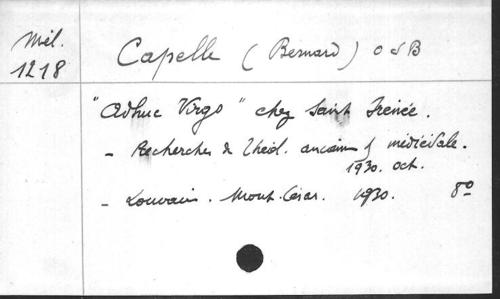 Mél. 1218
Capelle (Bernard) O S B
"Adhuc Virgo" chez Saint Irénée.
- Recherches de Théol. ancienne & médiévale.
1930. oct.
- Louvain. Mont-César. 1930. 8º